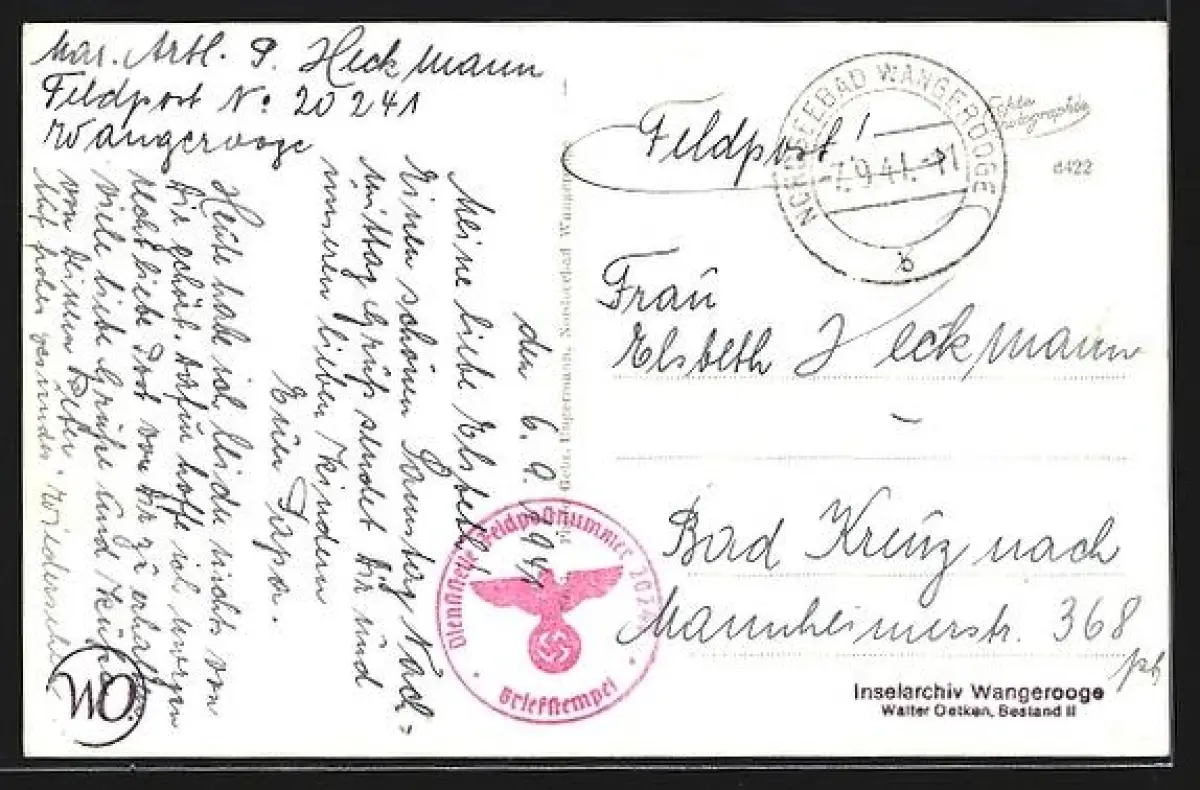 Mar. Artl. P. Heckmann
Feldpost No 20241
Wangerooge
Feldpost!
NORDSEEBAD WANGEROOGE
7.9.41.-11
b
Echte Photographie
d422
Frau
Elsbeth Heckmann
Bad Kreuznach
Mannheimerstr. 368
den 6.9.1941
Meine liebe Elsbeth!
Einen schönen Samstag Nach=
mittag Gruß sendet Dir und
unseren lieben Kindern
Euer Papa.
Heute habe ich leider nichts von
Dir gehört. Dafür hoffe ich morgen
recht liebe Post von Dir zu erhalten.
Viele liebe Grüße und Küsse
von Deinem Peter. Wiedersehn
Auf frohes gesundes
Gebr. Nordseebad Wangerooge
Dienststelle Feldpostnummer 20241
Briefstempel
WO
Inselarchiv Wangerooge
Walter Oetken, Bestand II